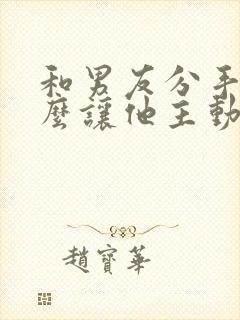 和男友分手
麼讓他主動
趙寶華